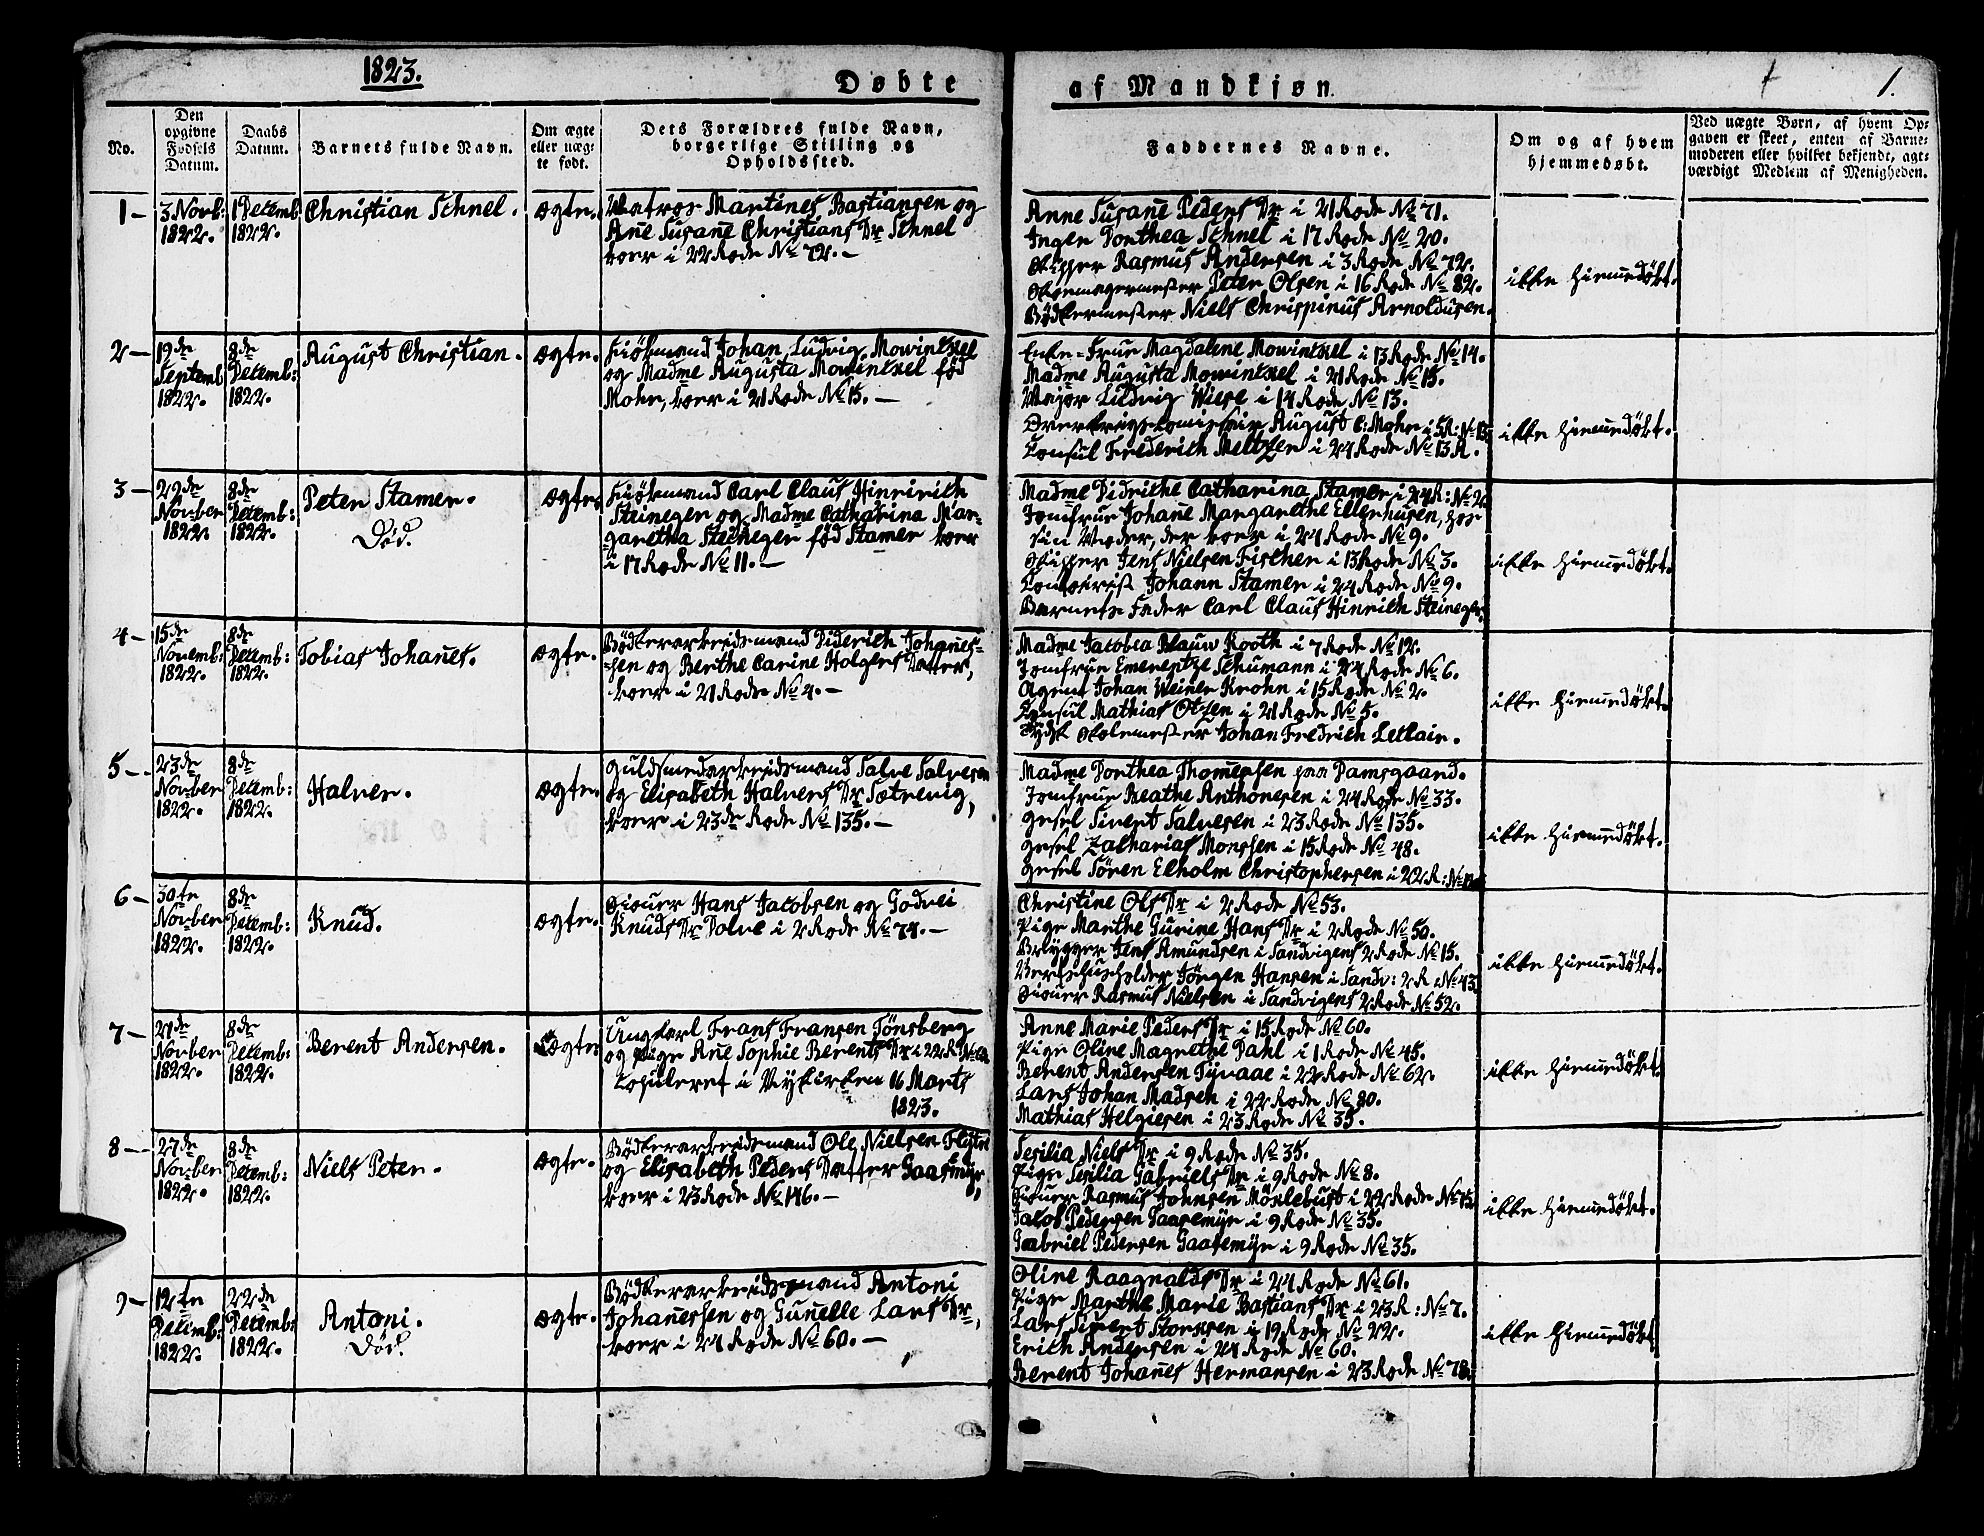 1823.
Døbte
af Mandkjøn.
1.
No.
Den opgivne Fødsels Datum.
Daabs Datum.
Barnets fulde Navn.
Om ægte eller uægte født.
Dets Forældres fulde Navn, borgerlige Stilling og Opholdssted.
Faddernes Navne.
Om og af hvem hjemmedøbt.
Ved uægte Børn, af hvem Opgaven er skeet, enten af Barnemoderen eller hvilket bekjendt, agtværdigt Medlem af Menigheden.
1 –
3 Novb: 1822.
1 Decemb 1822.
Christian Schnel.
ægte.
Matros Martines Bastiansen og
Añe Susañe Christians Dr Schnel
boer i 22 Rode No 72. –
Anne Susañe Peders Dr i 21 Rode No 71.
Inger Dorthea Schnel i 17 Rode No 20.
Skipper Rasmus Andersen i 3 Rode No 72.
Skomagermester Peter Olsen i 16 Rode No 82.
Bödkermester Niels Chrispinus Arnoldusen.
ikke hiemedöbt.
2 –
19de Septemb 1822.
8de Decemb: 1822.
August Christian.
ægte.
Kiöbmand Johan Ludvig Mowinckel
og Madme Augusta Mowinckel föd
Mohr, boer i 21 Rode No 15. –
Enke=Frue Magdalene Mowinckel i 13 Rode No 14.
Madme Augusta Mowinckel i 21 Rode No 15.
Major Ludvig Wiese i 14 Rode No 13.
August C: Mohr i 5 R: No 13
Consul Frederich Meltzer i 24 Rode No 13 A.
ikke hiemedöbt.
3 –
29de Novber 1822.
8de Decemb: 1822.
Peter Stamer.
Död.
ægte.
Kiöbmand Carl Claus Hinrich
Steineger og Madme Catharina Mar-
garetha Steineger föd Stamer boer
i 17 Rode No 11. –
Madme Didriche Catharina Stamer i 24 R: No 2
Jomfrue Johañe Margarethe Ellerhusen, hos
sin Moder, der boer i 24 Rode No 9.
Skipper Jens Nielsen Fischer i 13 Rode No 3.
Contoirist Johann Stamer i 24 Rode No 9.
Barnets Fader Carl Claus Hinrich Steineger.
ikke hiemedöbt.
4 –
15de Novemb: 1822.
8de Decemb: 1822.
Tobias Johañes.
ægte.
Bödkerarbeidsmand Diderich Johañes-
-sen og Berthe Carine Holgers Datter,
boer i 21 Rode No 4. –
Madme Jacobia Blauw Kooth i 7 Rode No 12.
Jomfrue Emerentze Schumann i 24 Rode No 6.
Agent Johan Weiner Krohn i 15 Rode No 2.
Consul Mathias Otzen i 21 Rode No 5.
Tydsk Skolemester Johan Fredrich Leclair.
ikke hiemedöbt.
5 –
23de Novber 1822.
8de Decemb: 1822.
Halver.
ægte.
Guldsmedarbeidsmand Salve Salvesen
og Elisabeth Halvers Dr Sætrevig,
boer i 23de Rode No 135. –
Madme Dorthea Thomersen paa Damsgaard.
Jomfrue Beathe Anthonesen i 24 Rode No 33.
Gesel Sivert Salvesen i 23 Rode No 135.
Gesel Zacharias Monssen i 15 Rode No 48.
Gesel Sören Elholm Christophersen i 22 R: No
ikke hiemedöbt.
6 –
30te Novber 1822.
8de Decemb: 1822.
Knud.
ægte.
Diouer Hans Jacobsen og Godvei
Knuds Dr Dolve i 2 Rode No 74. –
Christine Ols Dr i 2 Rode No 53.
Pige Marthe Gurine Hans Dr i 2 Rode No 50.
Brygger Jens Amundsen i Sandvigens 2 Rode No 15.
Vertshuusholder Jörgen Hansen i Sandv: 2 R: No 43.
Diouer Rasmus Nielsen i Sandvigens 2 Rode No 52.
ikke hiemedöbt.
7 –
21de Novber 1822.
8de Decemb: 1822.
Berent Andersen.
ægte
Ungkarl Frans Fransen Tönsberg
og Pige Añe Sophie Berents Dr i 22 R No 62
Copuleret i Nykirken 16 Marts
1823.
Anne Marie Peders Dr i 15 Rode No 60.
Pige Oline Magrethe Dahl i 1 Rode No 45.
Berent Andersen Tyvaae i 22 Rode No 62.
Lars Johan Madsen i 22 Rode No 80.
Mathias Helgiesen i 23 Rode No 35.
ikke hiemedöbt.
8 –
27de Novber 1822.
8de Decemb: 1822.
Niels Peter.
ægte.
Bödkerarbeidsmand Ole Nielsen
og Elisabeth Peders Datter Gaasemyr,
boer i 23 Rode No 146. –
Sesilia Niels Dr i 9 Rode No 35.
Pige Sesilia Gabriels Dr i 9 Rode No 8.
Diouer Rasmus Johnsen Möklebust i 22 Rode No 15.
Jacob Pedersen Gaasemyr i 9 Rode No 35.
Gabriel Pedersen Gaasemyr i 9 Rode No 35.
ikke hiemedöbt.
9 –
12te Decemb: 1822.
22de Decemb: 1822.
Antoni.
Död.
ægte.
Bödkerarbeidsmand Antoni
Johañessen og Guñelle Lars Dr,
boer i 24 Rode No 60. –
Oline Raagnalds Dr i 24 Rode No 61.
Pige Marthe Marie Bastians Dr i 23 R: No 7.
Lars Sivert Storksen i 19 Rode No 22.
Erich Andersen i 24 Rode No 60.
Berent Johañes Hermansen i 23 Rode No 78.
ikke hiemedöbt